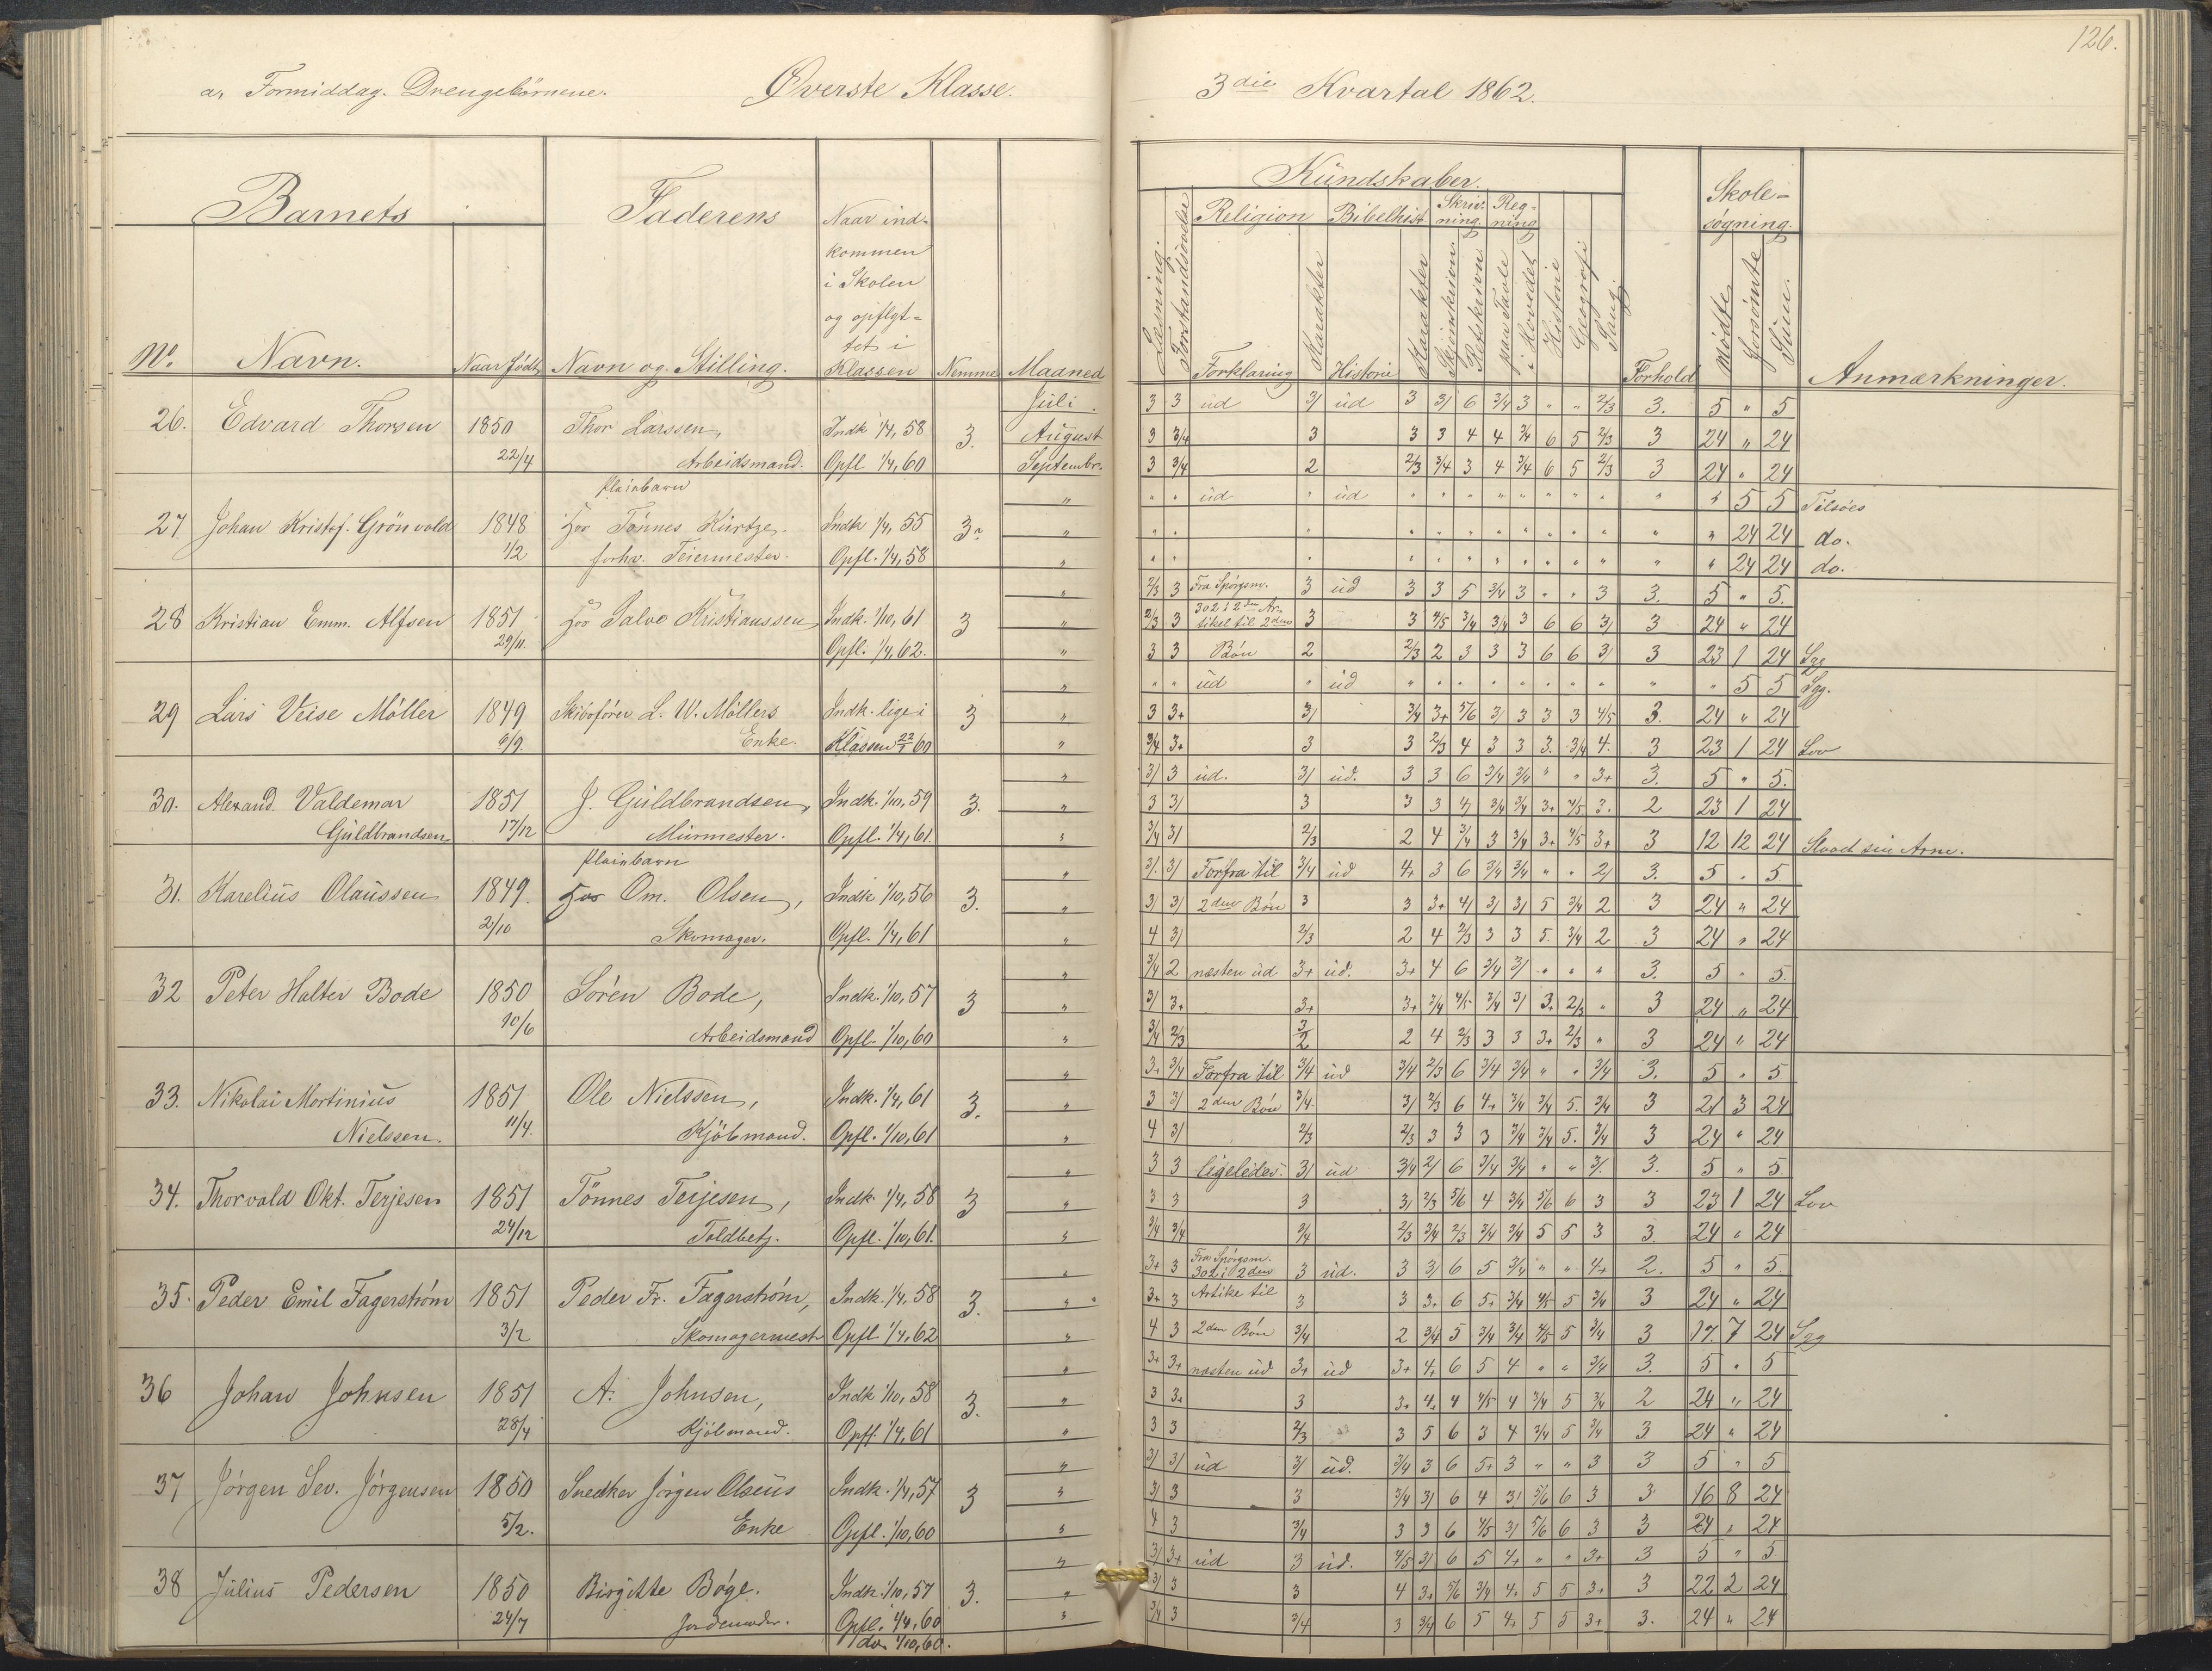 126.
a, Formiddag. Drengebørnene. Øverste Klasse. 3die Kvartal 1862.
Barnets Faderens Naar ind-
kommen
i Skolen
og opflyt-
tet i
No. Navn. Naar født, Navn og Stilling. Klassen Nemme Maaned
Kundskaber. Skole-
søgning.
Religion Bibelhist. Skriv- Reg-
ning. ning
Læsning. Forstandsøvelser Forklaring Karakter Historie Karakter Skjønskriven Retskrivn. paa Tavle i Hovedet Historie Geografi Sang Forhold Mødte Forsømte Sum. Anmærkninger.
Juli. 3 3 ud 3/ ud 3 3/ 6 3/4 3 " " 2/3 3. 5 " 5
26. Edvard Thorsen 1850 Thor Larssen, Indk 1/4, 58 3. August 3 3/4 3 3 3 4 4 3/4 6 5 2/3 3 24 " 24
22/4 Arbeidsmand. Opfl 1/4, 60 Septembr. 3 3/4 2 2/3 3/4 3 4 3/4 6 5 2/3 3 24 " 24
Pleiebarn " " " ud " ud " " " " " " " " " " 5 5 Tilsøes
27 Johan Kristof. Grönvold 1848 hos Tönnes Kurtze. Indk 1/4, 55 3. " " " " " " " " " " " " " " " 24 24 do.
1/2 forhv. Feiermester. Opfl. 1/4, 58 " " " " " " " " " " " " " " " 24 24 do.
" 2/3 3 Fra Spörgsm. 3 ud 3 3 5 3/4 3 " " 3 3. 5 " 5.
28 Kristian Emm. Alfsen 1851 hos Salve Kristiaussen Indk. 1/10, 61 3 " 2/3 3 302 i 2den Ar-
tikel til 2den 3 3 4/5 3/4 3/4 3 6 6 3/ 3 24 " 24
29/11. Opfl. 1/4, 62. " 3 3 Bön 2 2/3 2 3 3 3 6 6 3/ 3 23 1 24 Syg
" " " ud " ud " " " " " " " " " " 5 5 Syg.
29 Lars Veise Möller 1849 Skibsförer L. W. Möllers Indk. lige i 3 " 3 3+ 3/ 3/4 3+ 5/6 3/ 3 3 3 4/5 3. 24 " 24
6/9. Enke. Klassen 22/1 60 " 3/4 3+ 3 3 2/3 4 3 3 3. 3/4 4. 3 23 1 24 Lov
" 3/ 3 ud. 3/ ud. 3 3 6 3/4 3/4 " " 3+ 3. 5 " 5.
30. Alexand. Valdemar 1851 J. Guldbrandsen, Indk. 1/10, 59 3. " 3 3/ 3 3 3 4/ 3/4 3/4 3+ 4/5 3. 2 23 1 24
Guldbrandsen 17/12 Murmester. Opfl. 1/4, 61. " 3/4 3/ 2/3 2 4 3/4 3 3/4 3+ 4/5 3+ 3 12 12 24 Slaaet sin Arm.
Pleiebarn " 3/. 3/ Forfra til 3/4 ud 4+ 3 6 3/4 3/4 " " 2/ 3. 5 " 5
31. Karelius Olaussen 1849. hos Om. Olsen, Indk 1/10, 56 3. " 3/ 3/ 2den Bön 3 3 3+ 4/ 3/ 3/ 5 3/4 2 3 24 " 24
2/10 Skomager. Opfl. 1/4, 61 " 4 3/ 2/3 2 4 2/3 3 3 5. 3/4 2 3 24 " 24
" 3/4 2 næsten ud 3+ ud. 3+ 4 6 3/4 3/ " " " 3. 5 " 5.
32 Peter Halter Bode 1850 Sören Bode, Indk. 1/10, 57 3 " 3/ 3+ 3+ 3+ 3/4 4/5 3/4 3/ 3+ 2/3 " 3 24 " 24
10/6 Arbeidsmand Opfl. 1/10, 60 " 3/4 2/3 3/2 2 4 2/3 3 3 3+ 2/3 " 3 24 " 24
" 3+ 3/4 Forfra til 3/4 ud 3/4 2/3 6 3/4 3/4 " " 3/4 3. 5 " 5
33. Nikolai Martinius 1851 Ole Nielssen, Indk. 1/4, 61 3. " 3 3/ 2den Bön 3/4 3/ 2/3 6 4+ 3/4 3/4 5. 3/4 3 21 3 24
Nielssen. 11/4. Kjöbmand. Opfl. 1/10, 61 " 4 3/ 2/3 2/3 3 3 3 3/4 3/4 5. 3/4 3 24 " 24
" 3 3 ligeledes. 3/ ud 3/4 2/ 6 3/4 3/4 " " 3/. 3. 5 " 5
34. Thorvald Okt. Terjesen 1851 Tönnes Terjesen, Indk. 1/4, 58 3 " 3 3 3 3/ 2/3 5/6 4 3/4 5/6 6 3 3 23 1 24 Lov
24/12 Toldbetj. Opfl. 1/10, 61. " 3/4 3/4 3/4 2/3 3/4 2/3 3/4 3/4 5 5 3 3. 24 " 24
" 3+ 3 Fra Spörgsm.
302 i 2den 3 ud. 3 3/ 6 5 3/4 " " 4+ 2. 5 " 5.
35. Peder Emil Fagerström 1851 Peder Fr. Fagerström, Indk. 1/4, 58 3. " 3+ 3 Artike til 3 3 3+ 6 5+ 3/4 4/5 5 3/4 3 24 " 24
3/2 Skomagermest Opfl 1/4, 62 " 4 3 2den Bön 3/4 2 3/4 5 3/4 3/4 4/5 5 3/4 3 17. 7 24 Syg
" 3+ 3+ næsten ud 3+ ud 3+ 4+ 6 5 4 " " 3/4 3. 5 " 5
36 Johan Johnsen 1851 A. Johnsen, Indk 1/10, 58 3. " 3 3+ 3 3+ 4+ 4 4/5 4 3/4 5 3/4 2 24 " 24
28/4 Kjöbmand. Opfl. 1/4, 61 " 3 3 2/3 3 5 6 3 4 3/4 5 3/4 3 24 " 24
" 3/ 3/ ud 3/ ud. 3/4 3 6 5+ 3 " " 3 3 5 " 5
37 Jörgen Sev. Jörgensen 1850 Snedker Jörgen Olsens Indk. 1/4, 57 3 " 3/ 3 3 3/4 3/ 6 4 3/ 5/6 6 3 3 16 8 24
5/2. Enke Opfl. 1/10, 60 " 4 3 3/4 3 3 6 4/5 3/ 5/6 6 3 3 24 " 24
" 3/ 3+ ud 3 ud. 4/5 3/ 6 5 4+ " " 3+ 3 5 " 5
38 Julius Pedersen 1850 Birgitte Böge. Indk. 1/10, 57 3. " 3/ 3 3 4 3+ 5/6 3/4 4+ 5 5 3+ 3 22 2 24
24/7 Jordemoder. Opfl. 1/4, 60 " 3/4 3 3/4 3 3/4 6 5 4+ 5 5 3+ 3. 24 " 24
do. 1/10, 60.